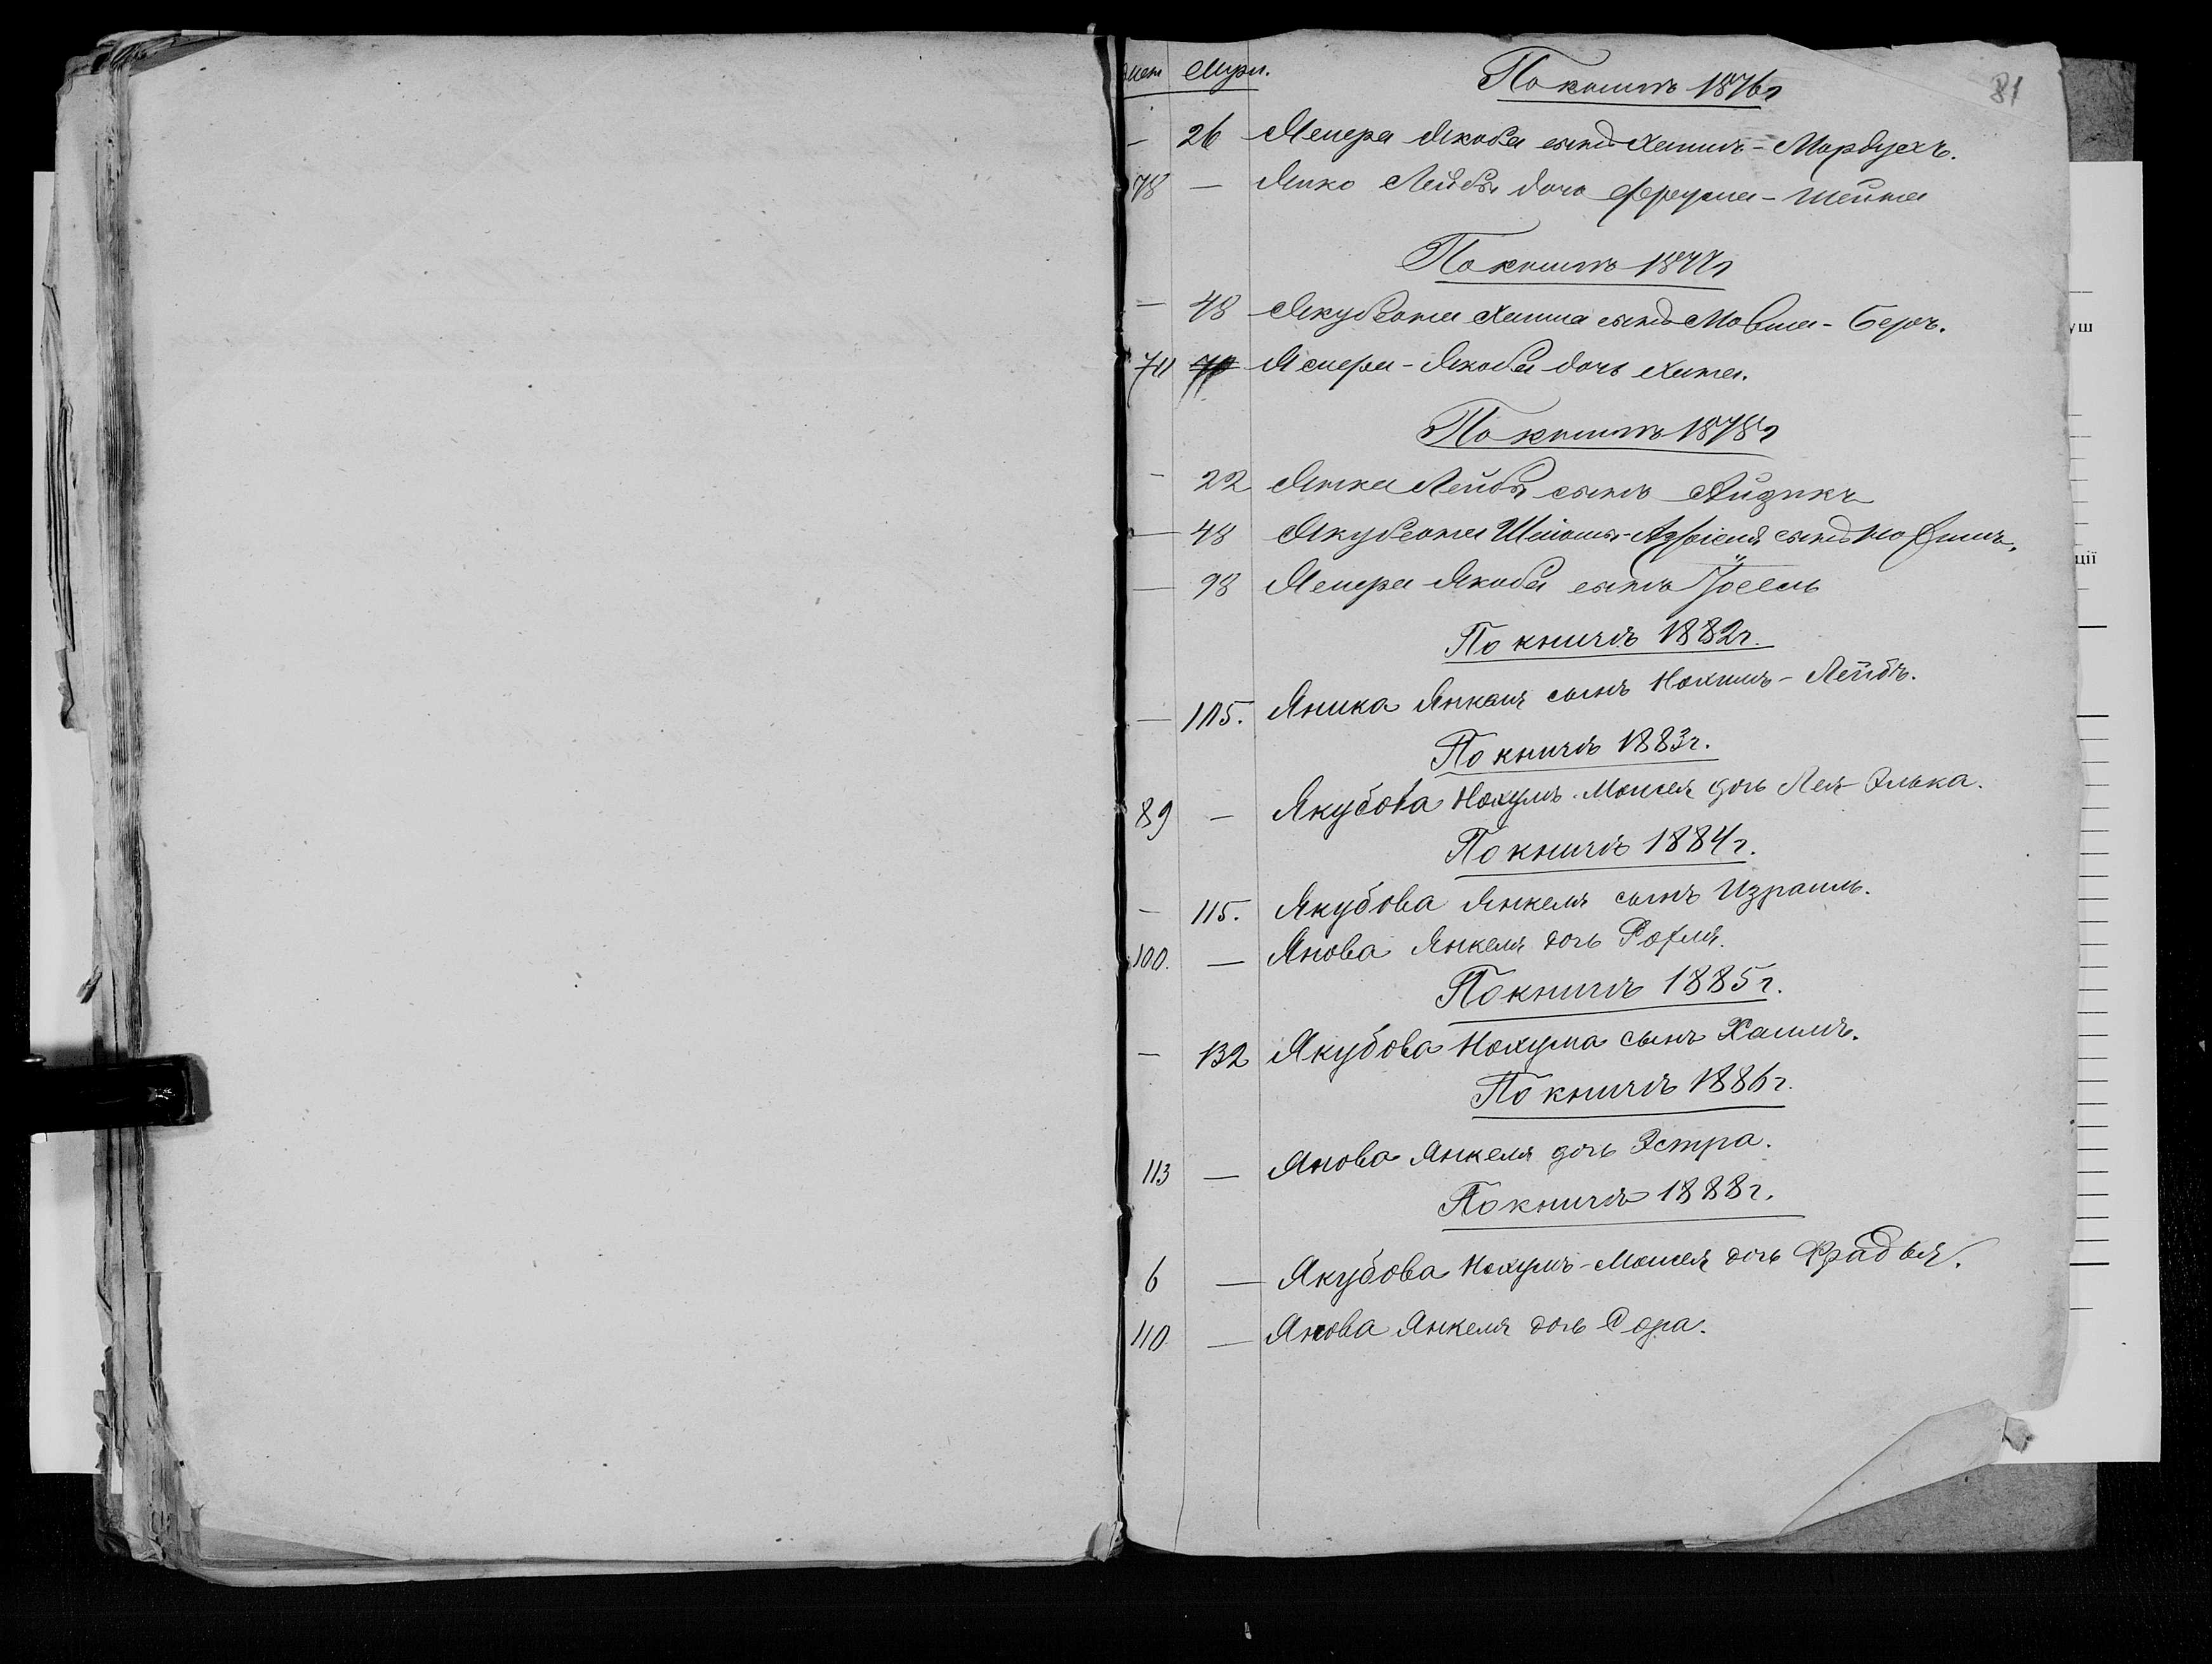 Мужч.
81
По книгѣ 1876 г
— 26 Яспера Якова сынъ Хаимъ-Мордухъ.
78 — Янко Лейбы дочь Фрейма-Шейна
По книгѣ 1877 г
— 48 Якубова Хаима сынъ Мовша-Беръ.
70 Яспера-Якова дочь Хана.
По книгѣ 1878 г
— 22 Янка Лейбы сынъ Айзикъ
— 48 Якубова сынъ
— 98 Яспера Якова сынъ Іосель
По книгѣ 1882 г.
— 115. Яника Янкеля сынъ Нохимъ-Лейбъ.
По книгѣ 1883 г.
89 — Якубова Нохумъ-Моисея дочь Лея-Элька.
По книгѣ 1884 г.
— 115. Якубова Янкеля сынъ Израиль.
100. — Янова Янкеля дочь Рохля.
По книгѣ 1885 г.
— 132 Якубова Нохума сынъ Хаимъ.
По книгѣ 1886 г.
113 — Янова Янкеля дочь Эстра.
По книгѣ 1888 г.
6 — Якубова Нохумъ-Моисея дочь Фрадья.
110 — Янова Янкеля дочь Сора.
уш
ції